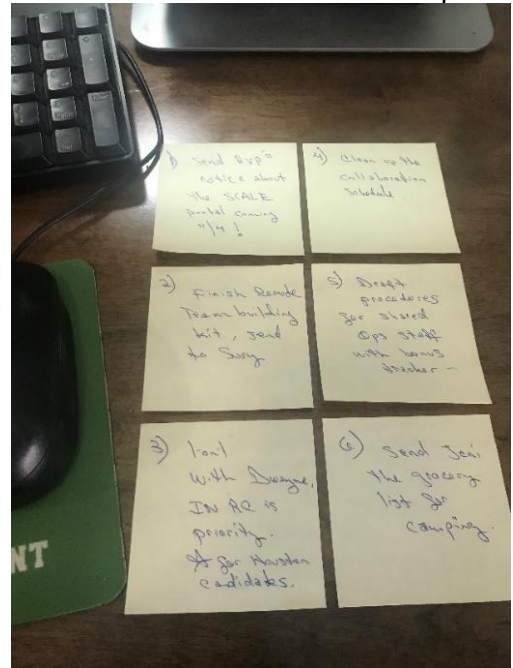 1) Send Rvp's
notice about
the SCALE
portal coming
11/4!
2) Finish Remote
Team building
kit, send
to Suzy
3) 1on1
with Dwayne,
IN AC is
priority.
for Houston
candidates.
4) Clean up the
collaboration
schedule
5) Draft
procedures
for shared
Ops staff
with bonus
tracker -
6) Send Jeni
the grocery
list for
camping.
NT